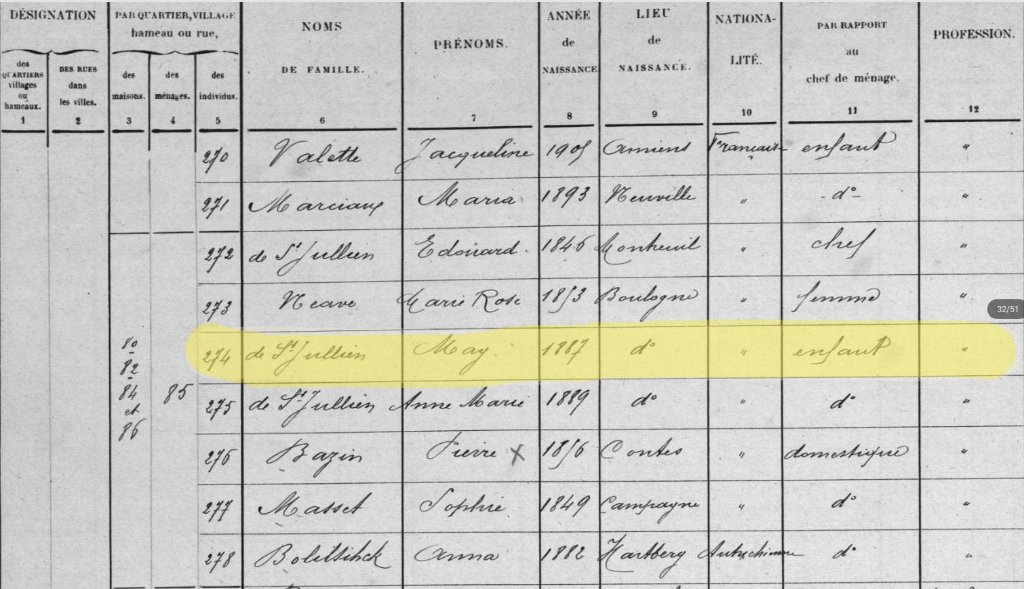 DÉSIGNATION PAR QUARTIER, VILLAGE hameau ou rue, NOMS DE FAMILLE. PRÉNOMS. ANNÉE de NAISSANCE LIEU de NAISSANCE. NATIONA-LITÉ. PAR RAPPORT au chef de ménage. PROFESSION.
des QUARTIERS villages ou hameaux. DES RUES dans les villes. des maisons. des ménages. des individus.
1 2 3 4 5 6 7 8 9 10 11 12
270 Valette Jacqueline 1905 Amiens Française enfant "
271 Marciaux Maria 1893 Neuville " d° "
272 de St Jullien Edouard 1846 Montreuil " chef "
273 Neave Marie Rose 1853 Boulogne " femme "
32/51
80 274 de St Jullien May 1887 d° " enfant "
82
84 et 86 85 275 de St Jullien Anne Marie 1889 d° " d° "
276 Bazin Pierre x 1856 Contes " domestique "
277 Masset Sophie 1849 Campagne " d° "
278 Anna 1882 Hartberg d° "